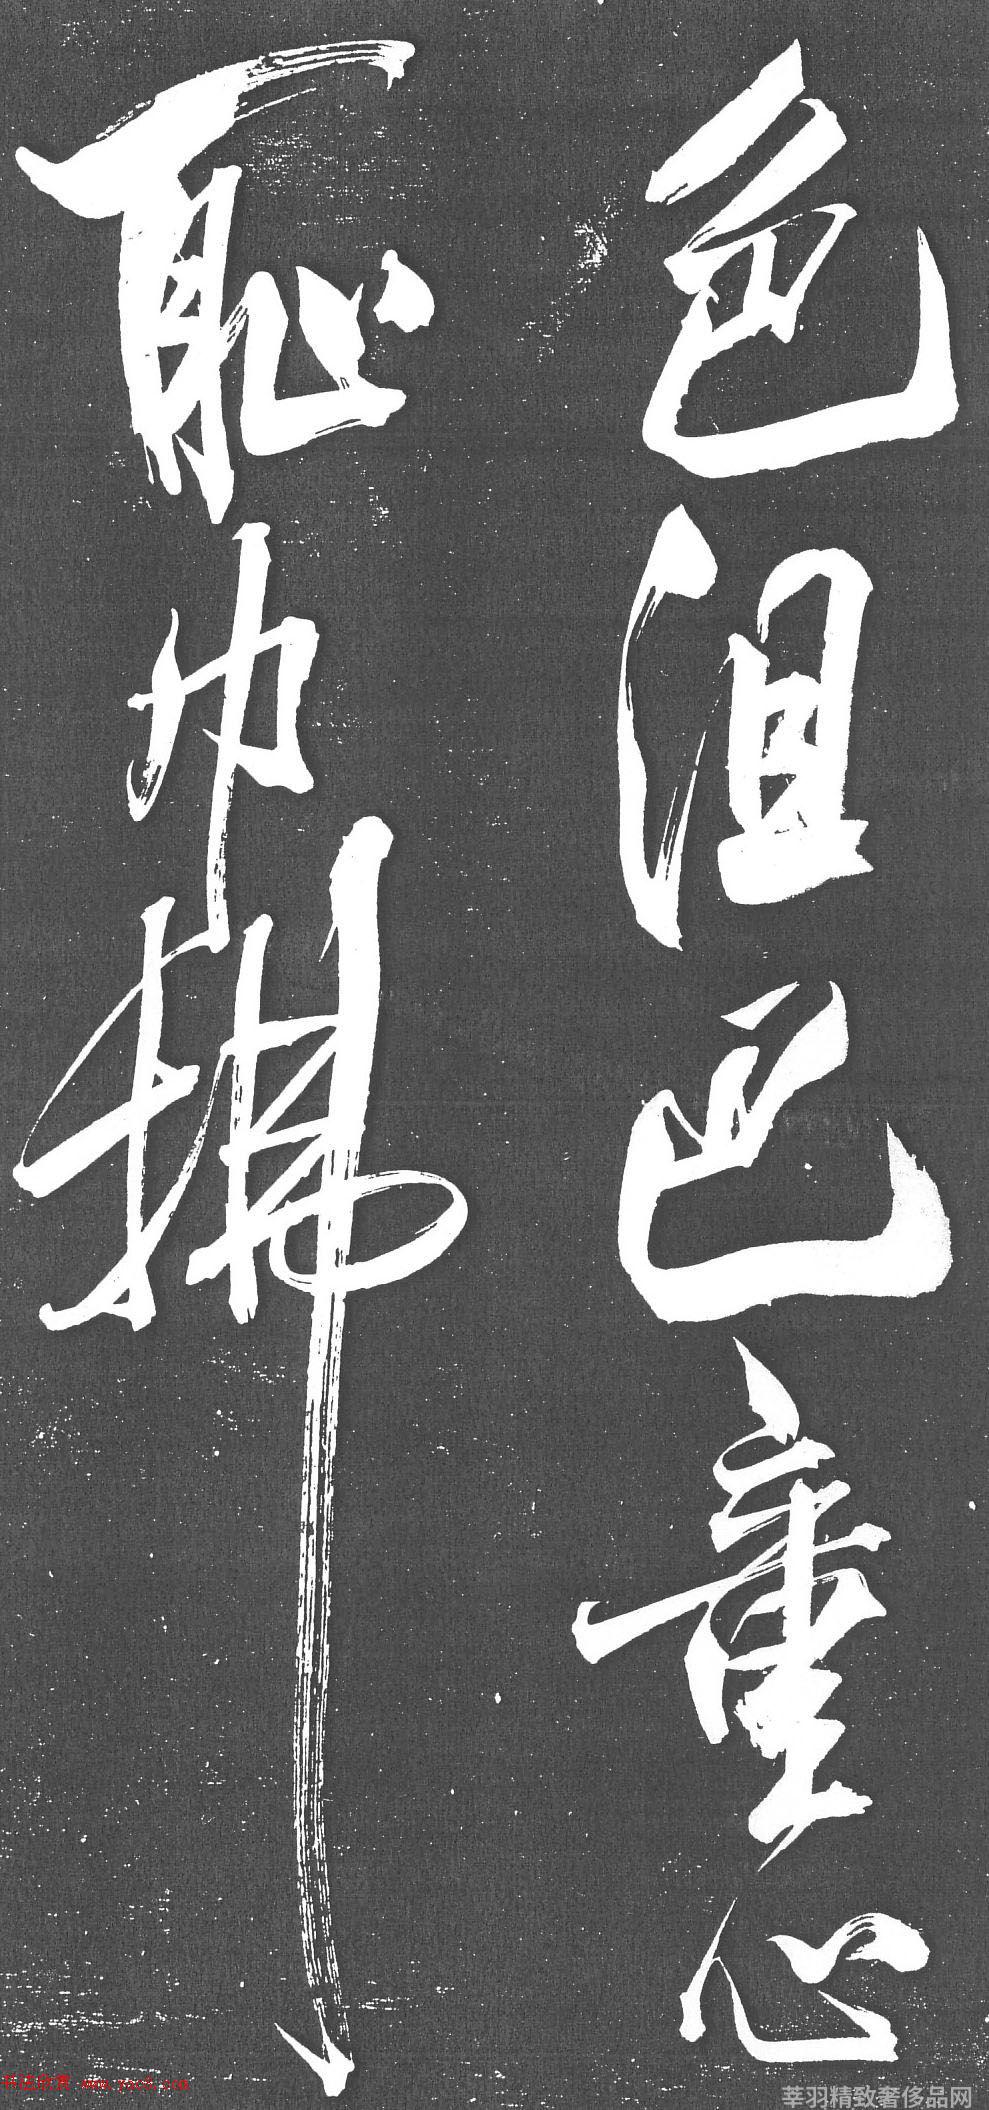 色沮巴童心
恥巾拂
书法欣赏 www.yac8.com
莘羽精致奢侈品网